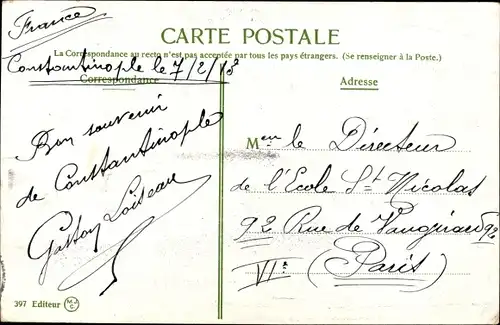 France
CARTE POSTALE
La Correspondance au recto n'est pas acceptée par tous les pays étrangers. (Se renseigner à la Poste.)
Constantinople le 7/2/13
Correspondance
Adresse
Bon souvenir
de Constantinople
Gaston Loiseau
Meur le Directeur
de l'Ecole St Nicolas
92 Rue de Vaugirard 92
VIe (Paris)
397 Editeur MJC